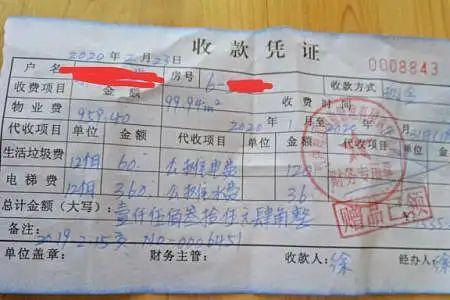 收款凭证
2020年2月23日
0008843
户名 房号 6- 收款方式
收费项目 金额 99.94m² 收费时间
物业费 959.40 2020 1 至
代收项目 单位 金额 代收项目 单位 金额
生活垃圾费 12个月 60. 公摊电费 120
电梯费 12个月 360. 公摊水费 36
总计金额（大写）：壹仟伍佰叁拾伍元肆角整
赠品已领
备注：2019.2.15 NO-0006451
单位盖章： 财务主管： 收款人：徐 经办人：徐